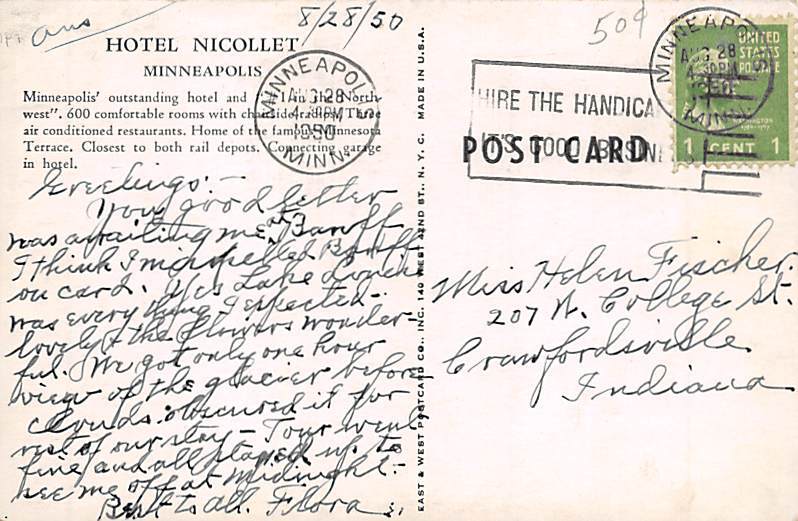 ans
8/28/50
50¢
HOTEL NICOLLET
MINNEAPOLIS
Minneapolis' outstanding hotel and in the "North-
west". 600 comfortable rooms with chairside radio. Three
air conditioned restaurants. Home of the famous Minnesota
Terrace. Closest to both rail depots. Connecting garage
in hotel.
MINNEAPOLIS
AUG 28
4 30PM
1950
MINN.
Greetings:-
Your good letter
was awaiting me at Banff
I think I misspelled Banff
on card. Yes Lake Louise
was every thing I expected.
lovely & the flowers wonder-
ful. We got only one hour
view of the glacier before
clouds obscured it for
rest of our stay - Tour went
fine and all stayed up to
see me off at midnight.-
Best to all. Flora
EAST & WEST POSTCARD CO., INC. 140 WEST 42ND ST., N. Y. C. MADE IN U.S.A.
MINNEAPOLIS
AUG 28
30PM
1950
MINN.
UNITED
STATES
POSTAGE
WASHINGTON
1 CENT 1
HIRE THE HANDICA
IT'S GOOD BUSINESS
POST CARD
Miss Helen Fischer.
207 N. College St.
Crawfordsville
Indiana